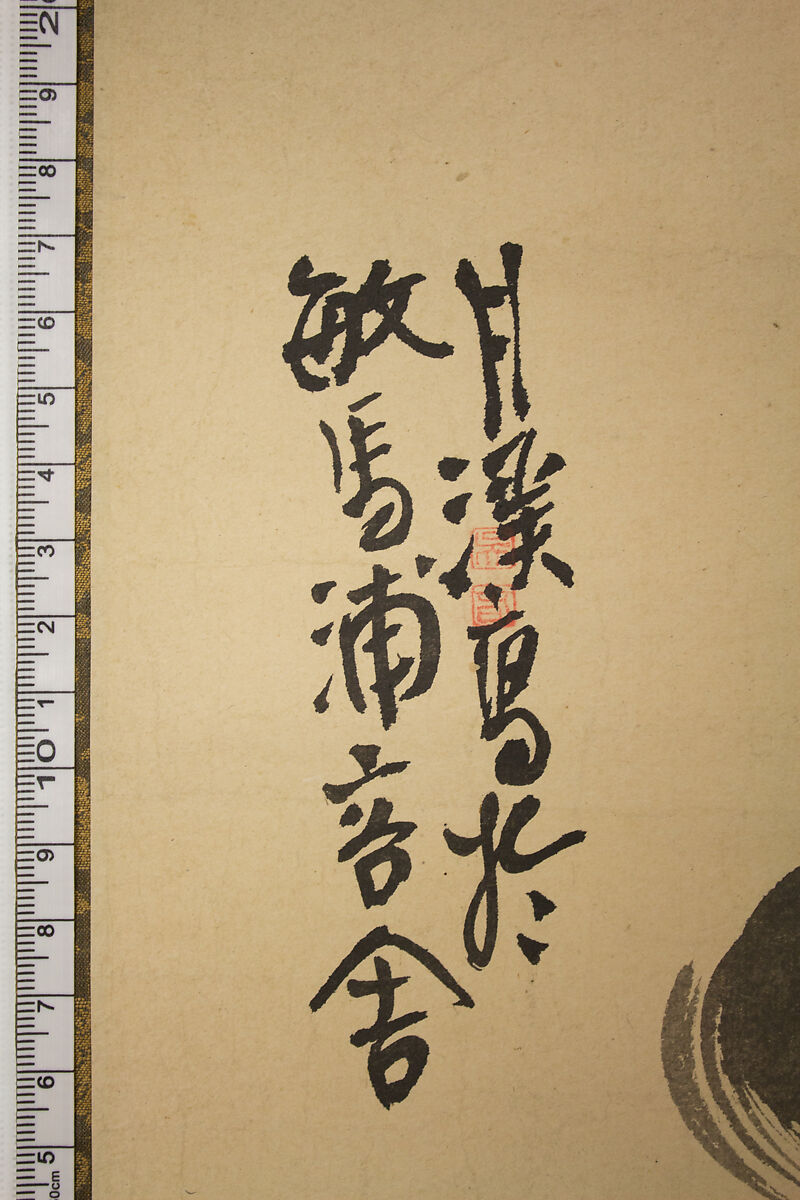 月溪寫於
敏馬浦客舍
2
9
8
7
6
5
4
3
2
1
10
9
8
7
6
5